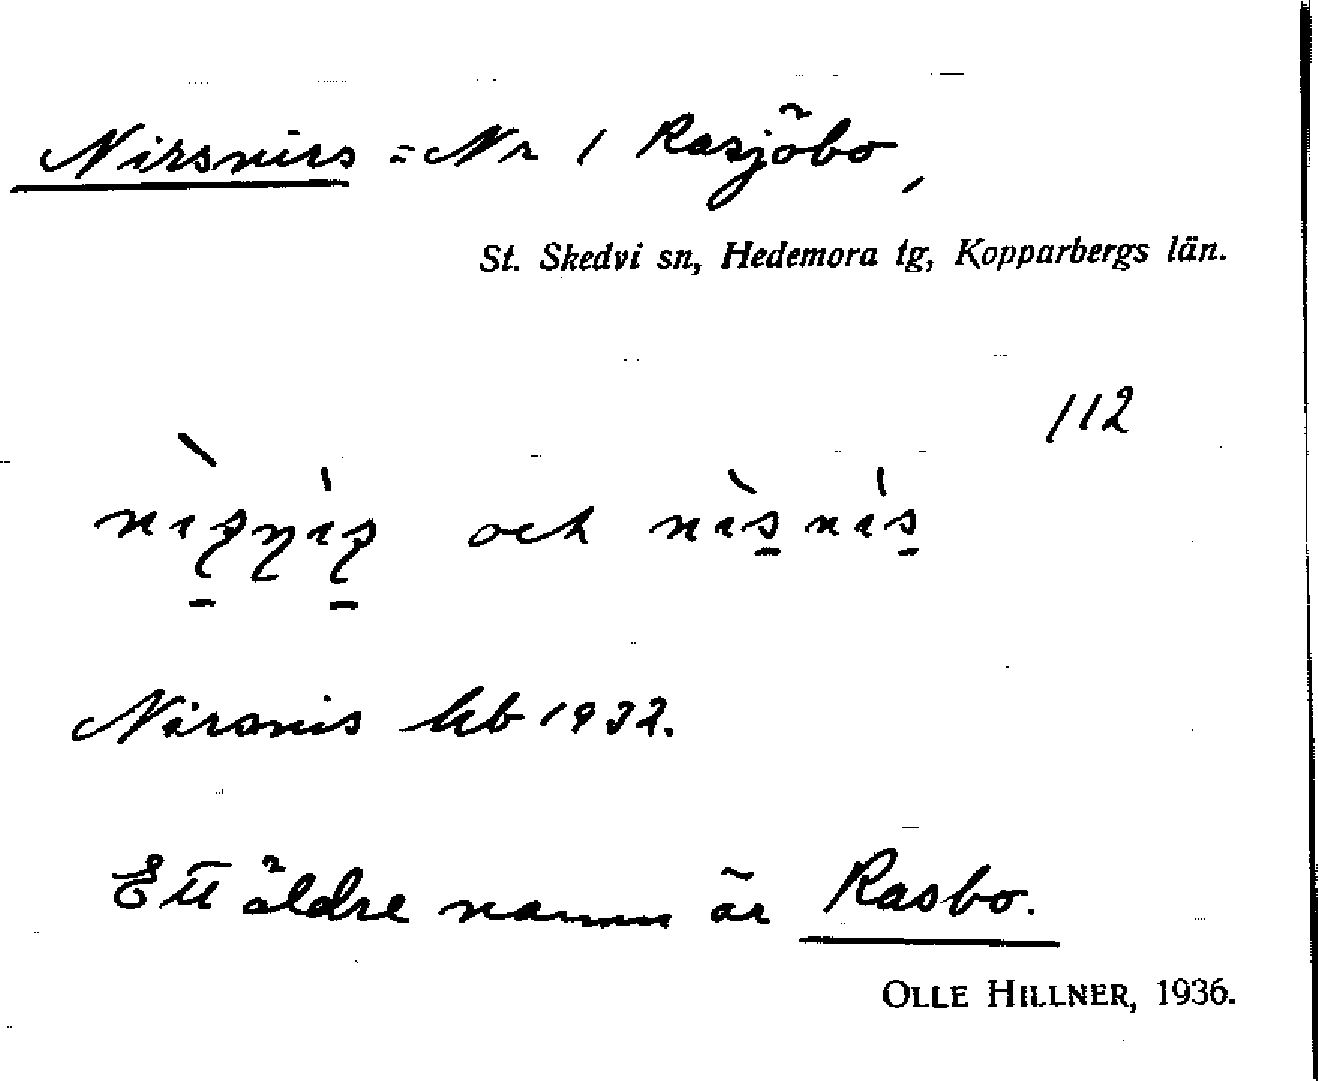 Nirsnirs = Nr 1 Rasjöbo,
St. Skedvi sn, Hedemora tg, Kopparbergs län.
112
och
Nirsnis kb 1932.
Ett äldre namn är Rasbo.
OLLE HILLNER, 1936.